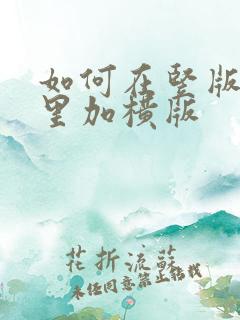 如何在竖版
里加横版
花折流蘇
未经同意禁止转载